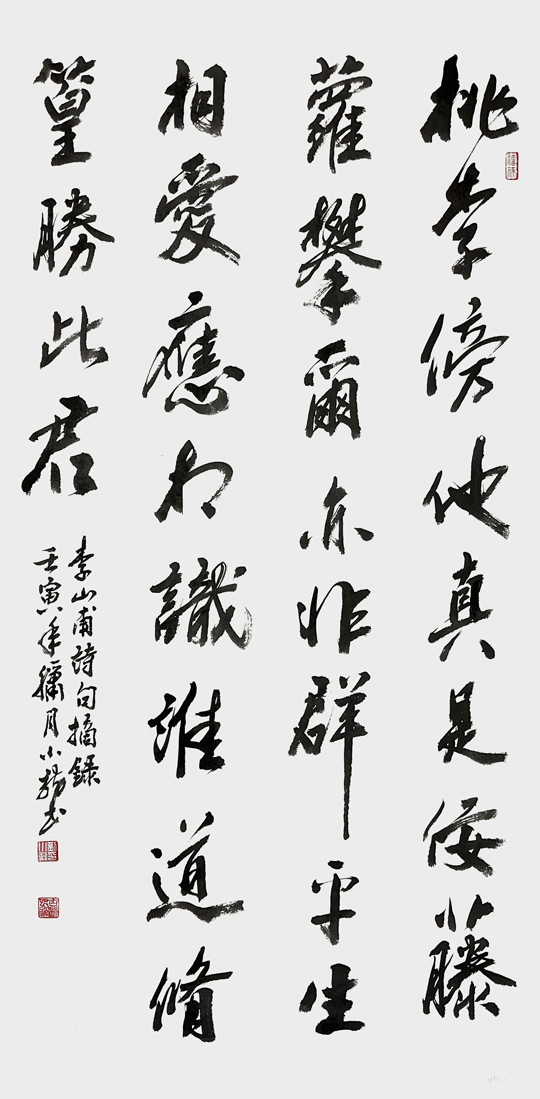 桃李傍他真是佞藤
蘿攀爾亦非群平生
相愛應相識誰道脩
篁勝此君
李山甫詩句摘錄
壬寅年臈月小楊书